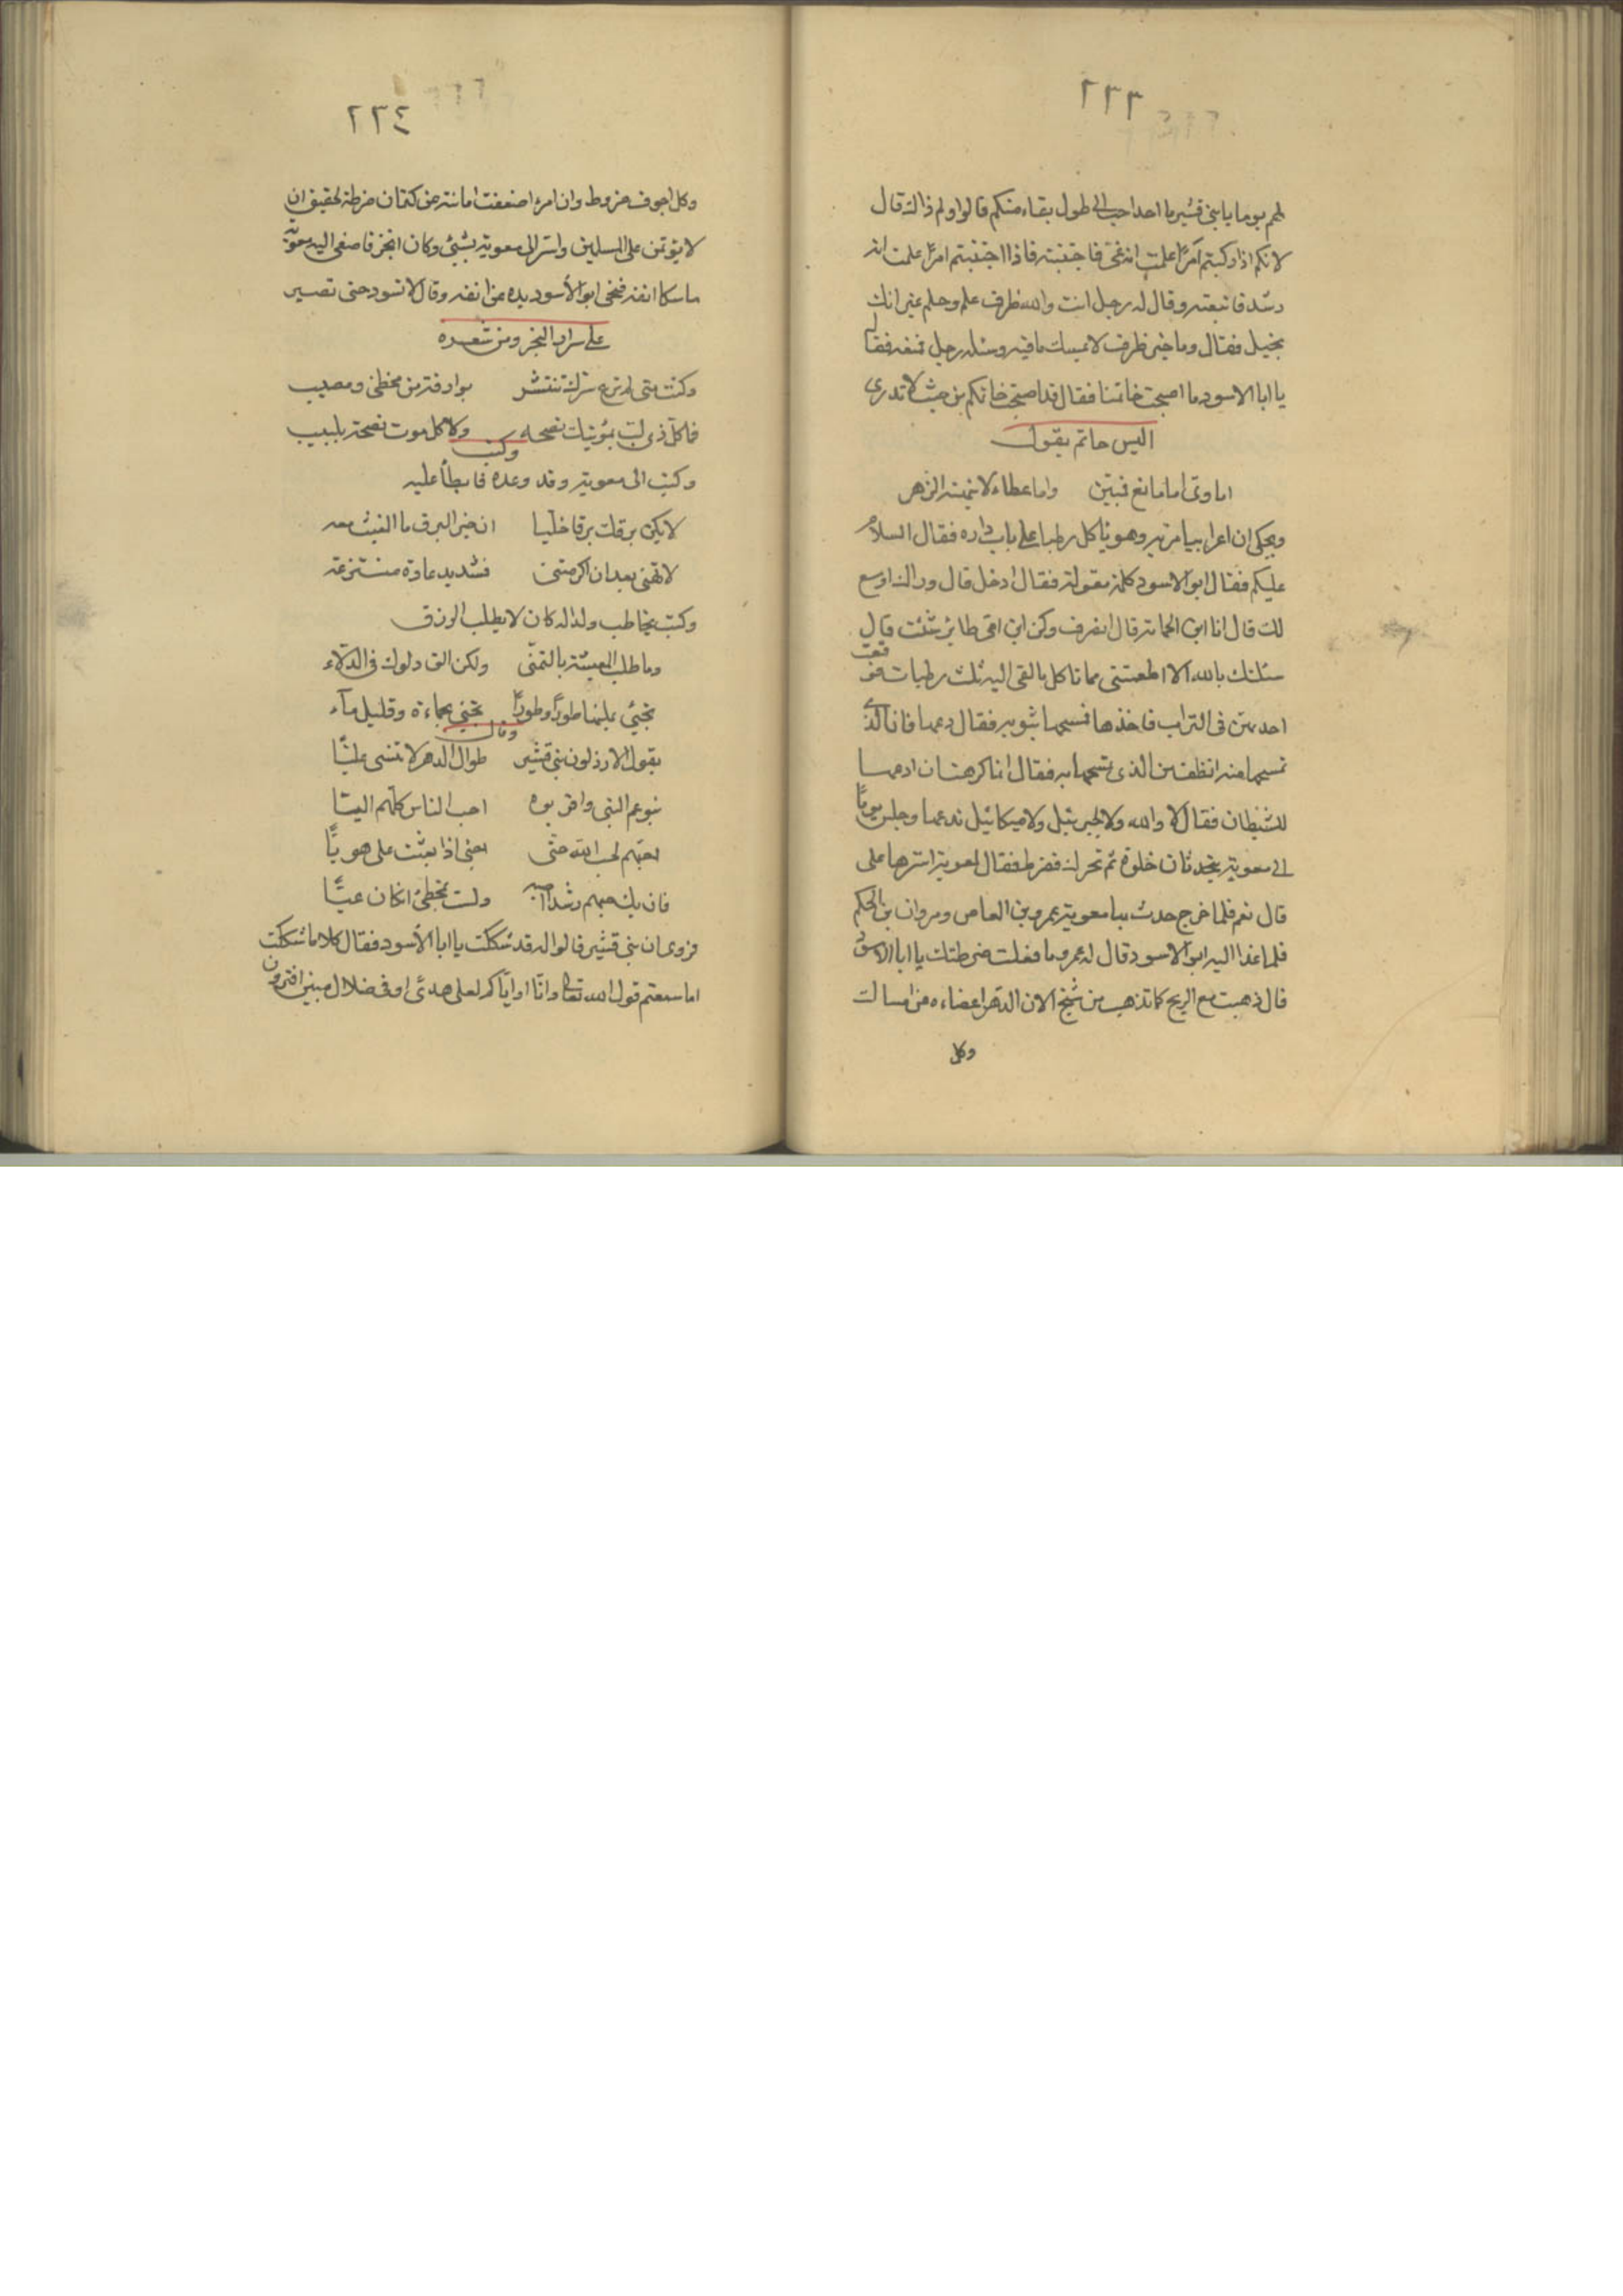 ٢٣٣
لهم يوما يا بنى قشير ما احد احب الى طول بقاء منكم قالوا ولم ذالك قال
لانكم اذا ركبتم امرًا علمت انه غى فاجتنبته فاذا اجتنبتم امرًا علمت انه
رشد فاتبعته وقال له رجل انت والله ظرف علم وحلم غير انك
بخيل فقال وما خير ظرف لا يمسك ما فيه وسئله رجل فمنعه فقال
يا ابا الاسود ما اصبحت حاتمنا فقال قد اصبحت حاتمكم من حيث لا تدرى
اليس حاتم يقول
اماوى اما مانع فمبين واما عطاء لا ينهنهه الزجر
ويحكى ان اعرابيا مر به وهو ياكل رطبا على باب داره فقال السلام
عليكم فقال ابو الاسود كلمة مقولة فقال ادخل قال ورائك اوسع
لك قال انا ابن الحمامة قال انصرف وكن ابن اى طائر شئت قال
سئلتك بالله الا اطعمتنى مما تاكل فالقى اليه ثلث رطبات فوقعت
احديهن فى التراب فاخذها فمسحها بثوبه فقال دعها فان الذى
تمسحها منه انظف من الذى تمسحها به فقال انا كرهت ان ادعها
للشيطان فقال لا والله ولا لجبرئيل ولا ميكائيل تدعها وجلس يومًا
الى معوية يتحدثان خلوة ثم تحرك فضرط فقال لمعوية استرها على
قال نعم فلما خرج حدث بها معوية عمرو بن العاص ومروان بن الحكم
فلما غدا اليه ابو الاسود قال له عمرو ما فعلت ضرطتك يا ابا الاسود
قال ذهبت مع الريح كما تذهب من شيخ الان الدهر اعضاءه عن امساك
وكل
٢٣٤
وكل اجوف ضروط وان امرء اضعفت امانته عن كتمان ضرطة لحقيق ان
لا يؤتمن على المسلمين واسر الى معوية بشيئ وكان ابخر فاصغى اليه معوية
ماسكا انفه فنحى ابو الأسود يده عن انفه وقال لا تسود حتى تصبر
على سرار البخر ومن شعره
وكنت متى لم ترع سرك تنتشر بوادره من مخطئ ومصيب
فما كل ذى لب بمؤتيك نصحه وما كل موت نصحه بلبيب
وكتب
وكتب الى معوية وقد وعده فابطأ عليه
لا يكن برقك برقا خلّبا ان خير البرق ما الغيث معه
لا تهنى بعد ان اكرمتنى فشديد عادة منتزعة
وكتب يخاطب ولدا له كان لا يطلب الرزق
وما طلب المعيشة بالتمنّى ولكن الق دلوك فى الدلاء
تجيئ بملئها طورًا وطورًا تجيئ بحماءة وقليل مآء
وقال
يقول الارذلون بنى قشير طوال الدهر لا تنسى عليًّا
بنو عم النبى واقربوه احب الناس كلّهم اليّا
احبّهم لحب الله حتى اجئ اذا بعثت على هويّا
فان يك حبهم رشدا اصبه ولست بمخطئ ان كان غيّا
فروى ان بنى قشير قالوا له قد شككت يا ابا الأسود فقال كلا ما شككت
اما سمعتم قول الله تعالى وانّا او ايّاكم لعلى هدىً او فى ضلال مبين افترون